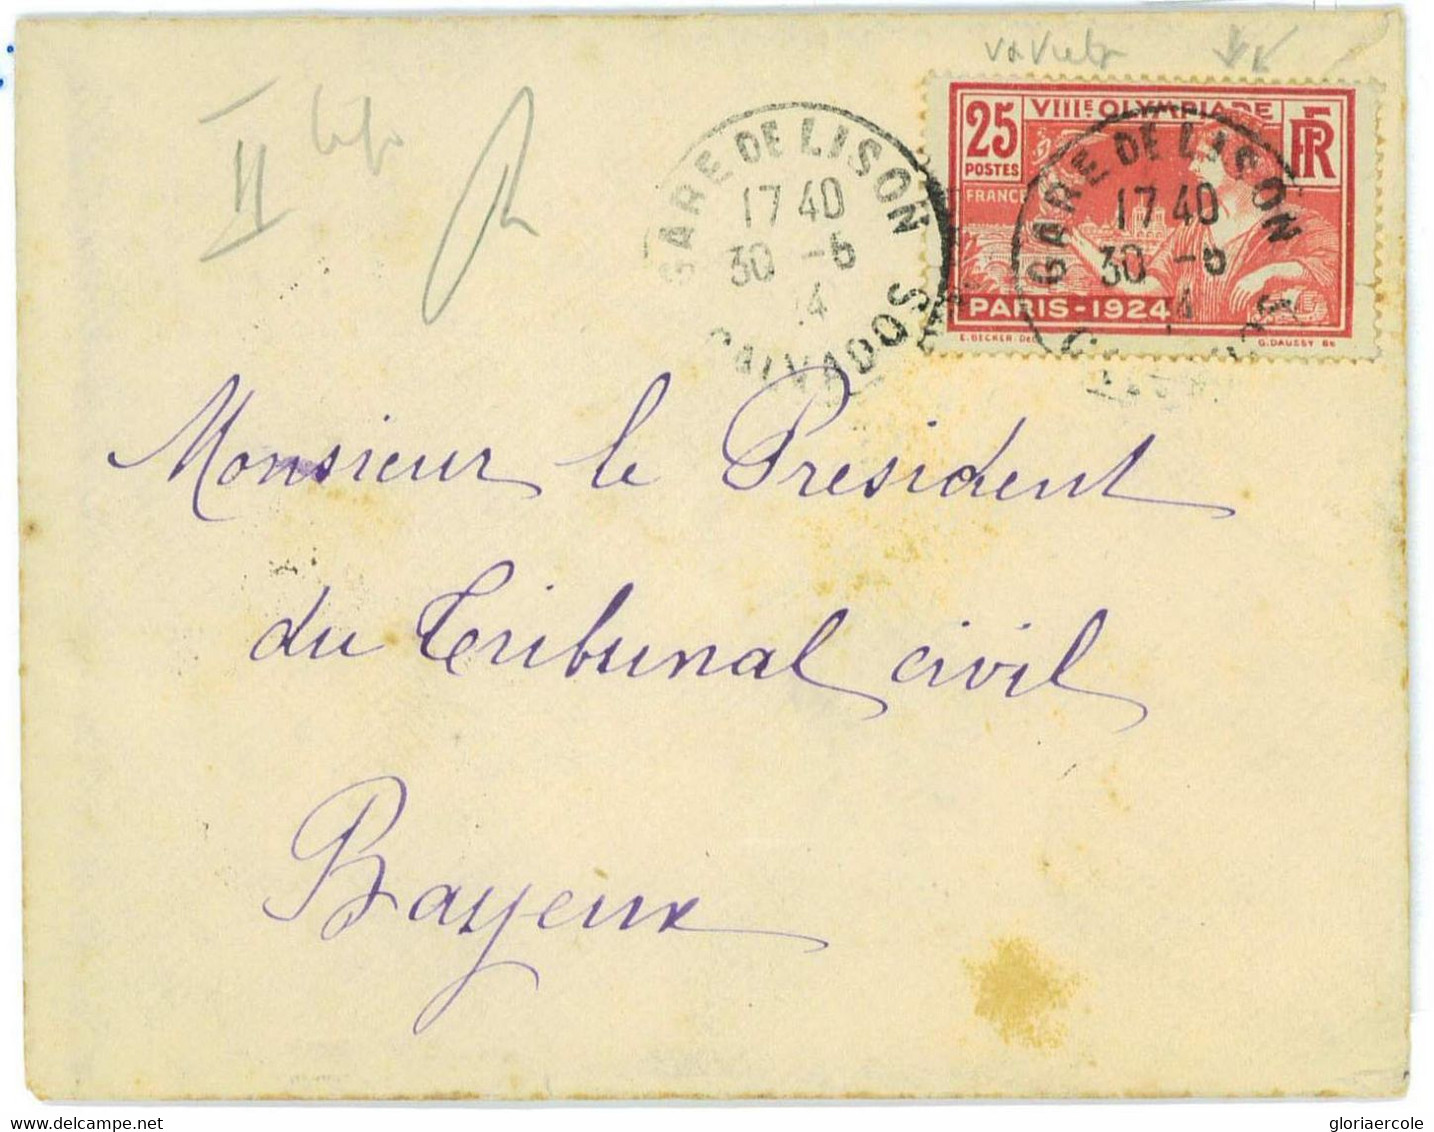 II
GARE DE LISON
17 40
30 -6
CALVADOS
25
POSTES
VIIIE OLYMPIADE
RF
FRANCE
PARIS-1924
G. DAUSSY
GARE DE LISON
17 40
30 -6
Monsieur le President
du Tribunal civil
Bayeux
www.delcampe.net
gloriaercole